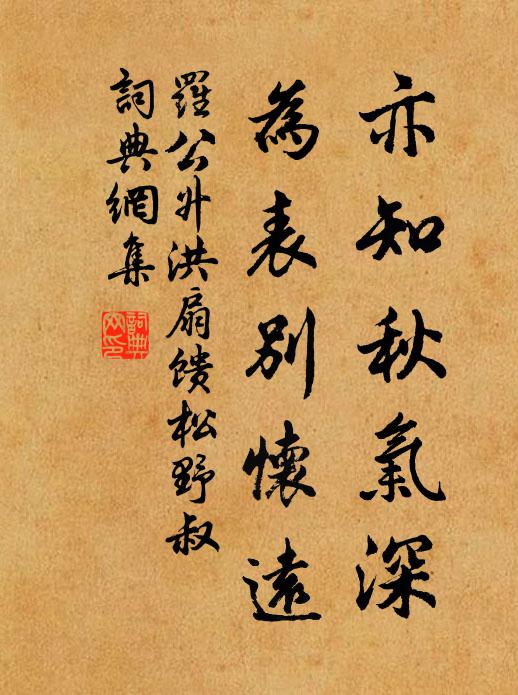 亦知秋氣深
為表別懷遠
羅公升洪扇馈松野叔
詞典網集
詞典網印